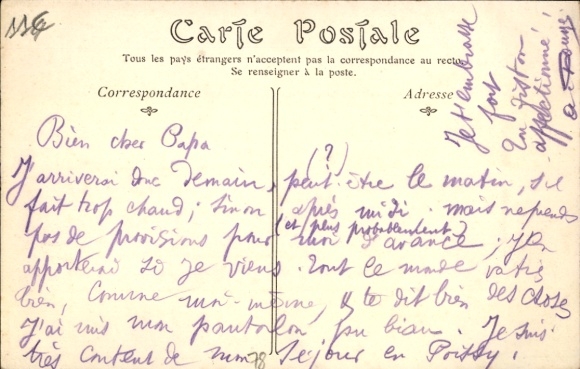 116
Carte Postale
Tous les pays étrangers n'acceptent pas la correspondance au recto
Se renseigner à la poste.
Correspondance
Adresse
Bien cher Papa
J'arriverai donc demain, peut-être le matin, s'il (?)
fait trop chaud; sinon après midi. mais ne prends
(et plus probablement)
pas de provisions pour moi d'avance; j'en
apporterai si je viens. Tout le monde va très
bien, comme moi-même, & te dit bien des choses
J'ai mis mon pantalon bleu. Je suis
très content de mon séjour en Poissy.
78
Je t'embrasse
fort
Ton fiston
affectionné!